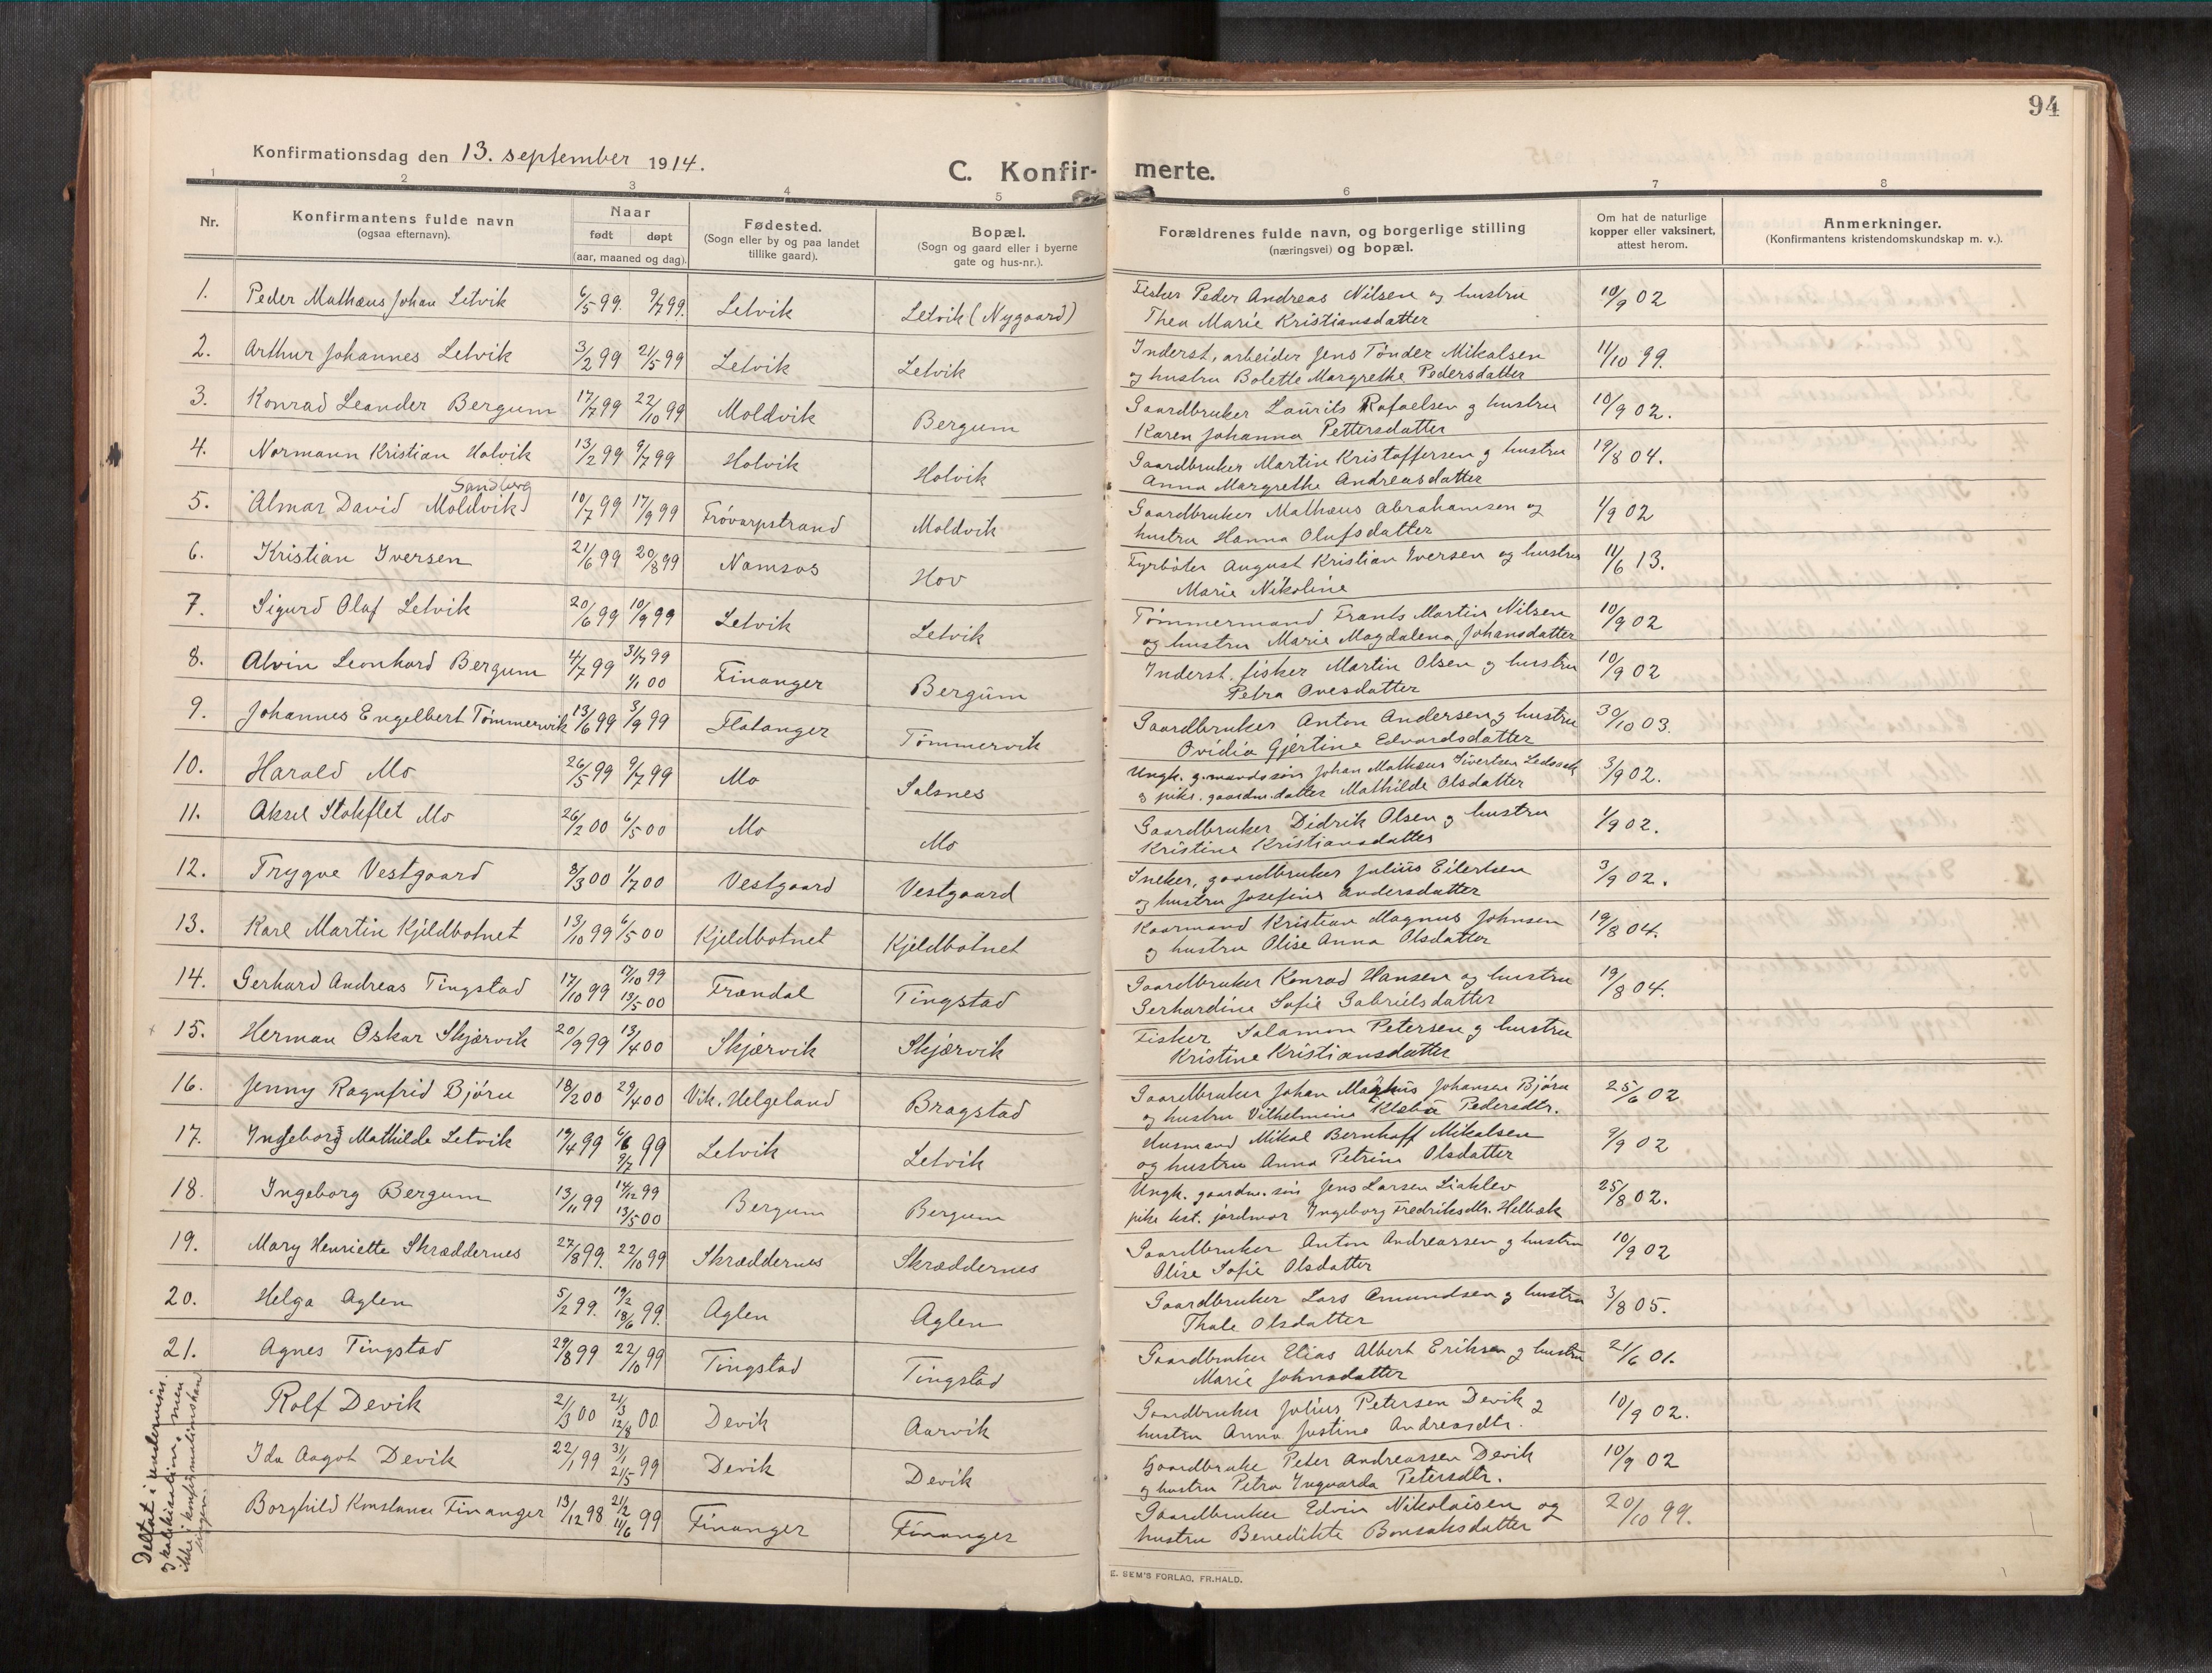 94
Konfirmationsdag den 13. september 1914.
C. Konfir- merte.
1 2 3 4 5 6 7 8
Nr.
Konfirmantens fulde navn
(ogsaa efternavn).
Naar
født døpt
(aar, maaned og dag).
Fødested.
(Sogn eller by og paa landet
tillike gaard).
Bopæl.
(Sogn og gaard eller i byerne
gate og hus-nr.).
Forældrenes fulde navn, og borgerlige stilling
(næringsvei) og bopæl.
Om hat de naturlige
kopper eller vaksinert,
attest herom.
Anmerkninger.
(Konfirmantens kristendomskundskap m. v.).
1. Peder Mathæus Johan Letvik 6/5 99. 9/7 99. Letvik Letvik (Nygaard) Fisker Peder Andreas Nilsen og hustru 10/9 02
Thea Marie Kristiansdatter
2. Arthur Johannes Letvik 3/2 99 21/5 99 Letvik Letvik Inderst, arbeider Jens Tønder Mikalsen 11/10 99.
og hustru Bolette Margrethe Pedersdatter
3. Konrad Leander Bergum 17/7 99 22/10 99 Moldvik Bergum Gaardbruker Laurits Rafaelsen og hustru 10/9 02.
Karen Johanna Pettersdatter
4. Normann Kristian Holvik 13/2 99 9/7 99 Holvik Holvik Gaardbruker Martin Kristoffersen og hustru 19/8 04.
Anna Margrethe Andreasdatter
Sandberg
5. Almar David Moldvik 10/7 99 17/9 99 Frövarpstrand Moldvik Gaardbruker Mathæus Abrahamsen og 1/9 02
hustru Hanna Olufsdatter
6. Kristian Iversen 21/6 99 20/8 99 Namsos Hov Fyrbøter August Kristian Iversen og hustru 11/6 13.
Marie Nikoline
7. Sigurd Olaf Letvik 20/6 99 10/9 99 Letvik Letvik Tømmermand Frants Martin Nilsen 10/9 02
og hustru Marie Magdalena Johansdatter
8. Alvin Leonhard Bergum 4/7 99 31/7 99 1/1 00 Finanger Bergum Inderst, fisker Martin Olsen og hustru 10/9 02
Petra Ovesdatter
9. Johannes Engelbert Tømmervik 13/6 99 3/9 99 Flatanger Tømmervik Gaardbruker Anton Andersen og hustru 30/10 03.
Ovidia Gjertine Edvardsdatter
10. Harald Mo 26/5 99 9/7 99 Mo Salsnes Ungk. g.mandssøn Johan Mathæus Sivertsen 3/9 02.
og pike, gaardm.datter Mathilde Olsdatter
11. Aksel Stokflet Mo 26/2 00 6/5 00 Mo Mo Gaardbruker Didrik Olsen og hustru 1/9 02.
Kristine Kristiansdatter
12. Trygve Vestgaard 8/3 00 1/7 00 Vestgaard Vestgaard Sneker, gaardbruker Julius Eilertsen 3/9 02.
og hustru Josefine Andersdatter
13. Karl Martin Kjeldbotnet 13/10 99 6/5 00 Kjeldbotnet Kjeldbotnet Kaarmand Kristian Magnus Johnsen 19/8 04.
og hustru Olise Anna Olsdatter
14. Gerhard Andreas Tingstad 17/10 99 17/10 99 13/5 00 Frændal Tingstad Gaardbruker Konrad Hansen og hustru 19/8 04.
Gerhardine Sofie Gabrielsdatter
15. Herman Oskar Skjærvik 20/9 99 13/4 00 Skjærvik Skjærvik Fisker Salamon Petersen og hustru
Kristine Kristiansdatter
16. Jenny Ragnfrid Bjøru 18/2 00 29/4 00 Vik. Helgeland Bragstad Gaardbruker Johan Magnus Johansen Bjøru 25/6 02
og hustru Vilhelmine Klebä Pedersdtr.
17. Ingeborg Mathilde Letvik 19/4 99 6/6 9/7 99 Letvik Letvik Husmand Mikal Bernhoff Mikalsen 9/9 02
og hustru Anna Petrine Olsdatter
18. Ingeborg Bergum 13/11 99 14/12 99 13/5 00 Bergum Bergum Ungk. gaardm.søn Jens Larsen Liaklev 25/8 02.
pike kst. jordmor Ingeborg Fredriksdtr. Helbæk
19. Mary Henriette Skræddernes 27/8 99. 22/10 99 Skræddernes Skræddernes Gaardbruker Anton Andreassen og hustru 10/9 02
Olise Sofie Olsdatter
20. Helga Aglen 5/2 99. 19/2 18/6 99. Aglen Aglen Gaardbruker Lars Amundsen og hustru 3/8 05.
Thale Olsdatter
21. Agnes Tingstad 29/8 99 22/10 99 Tingstad Tingstad Gaardbruker Elias Albert Eriksen og hustru 21/6 01.
Marie Johnsdatter
Rolf Devik 21/3 00 21/3 12/8 00 Devik Aarvik Gaardbruker Julius Petersen Devik og 10/9 02.
hustru Anna Justine Andreasdtr.
Ida Aagot Devik 22/1 99 31/1 21/5 99 Devik Devik Gaardbruke Peter Andreassen Devik 10/9 02
og hustru Petra Ingvarda Petersdtr.
Borghild Konstance Finanger 13/12 98 21/2 11/6 99 Finanger Finanger Gaardbruker Edvin Nikolaisen og 20/10 99.
hustru Benedikte Bonsaksdatter
Deltat i undervisn.
og katekisation, men
ikke i konfirmationshandlingen.
E. SEM'S FORLAG, FR.HALD.